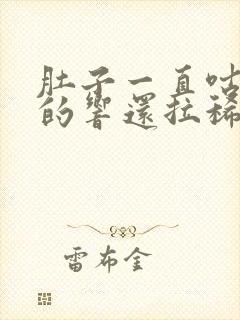 肚子一直咕
的響還拉稀
雷布金